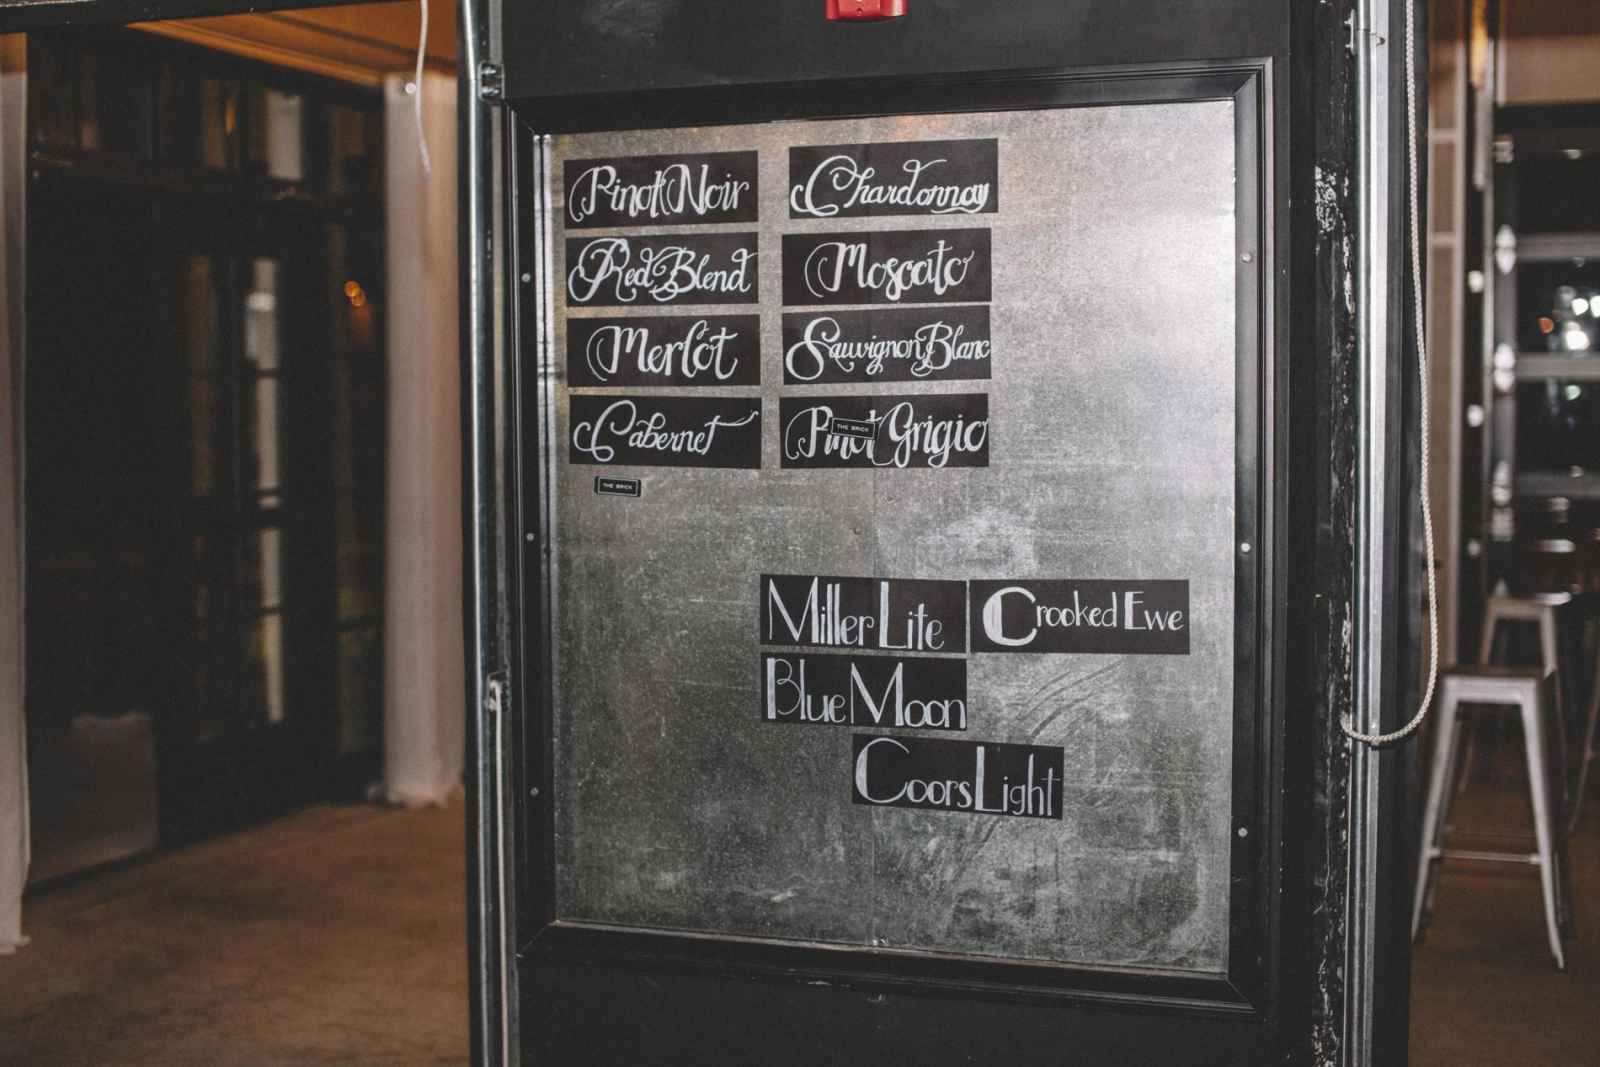 Pinot Noir
Red Blend
Merlot
Cabernet
THE BRICK
Chardonnay
Moscato
Sauvignon Blanc
Pinot Grigio
THE BRICK
Miller Lite
Crooked Ewe
Blue Moon
Coors Light